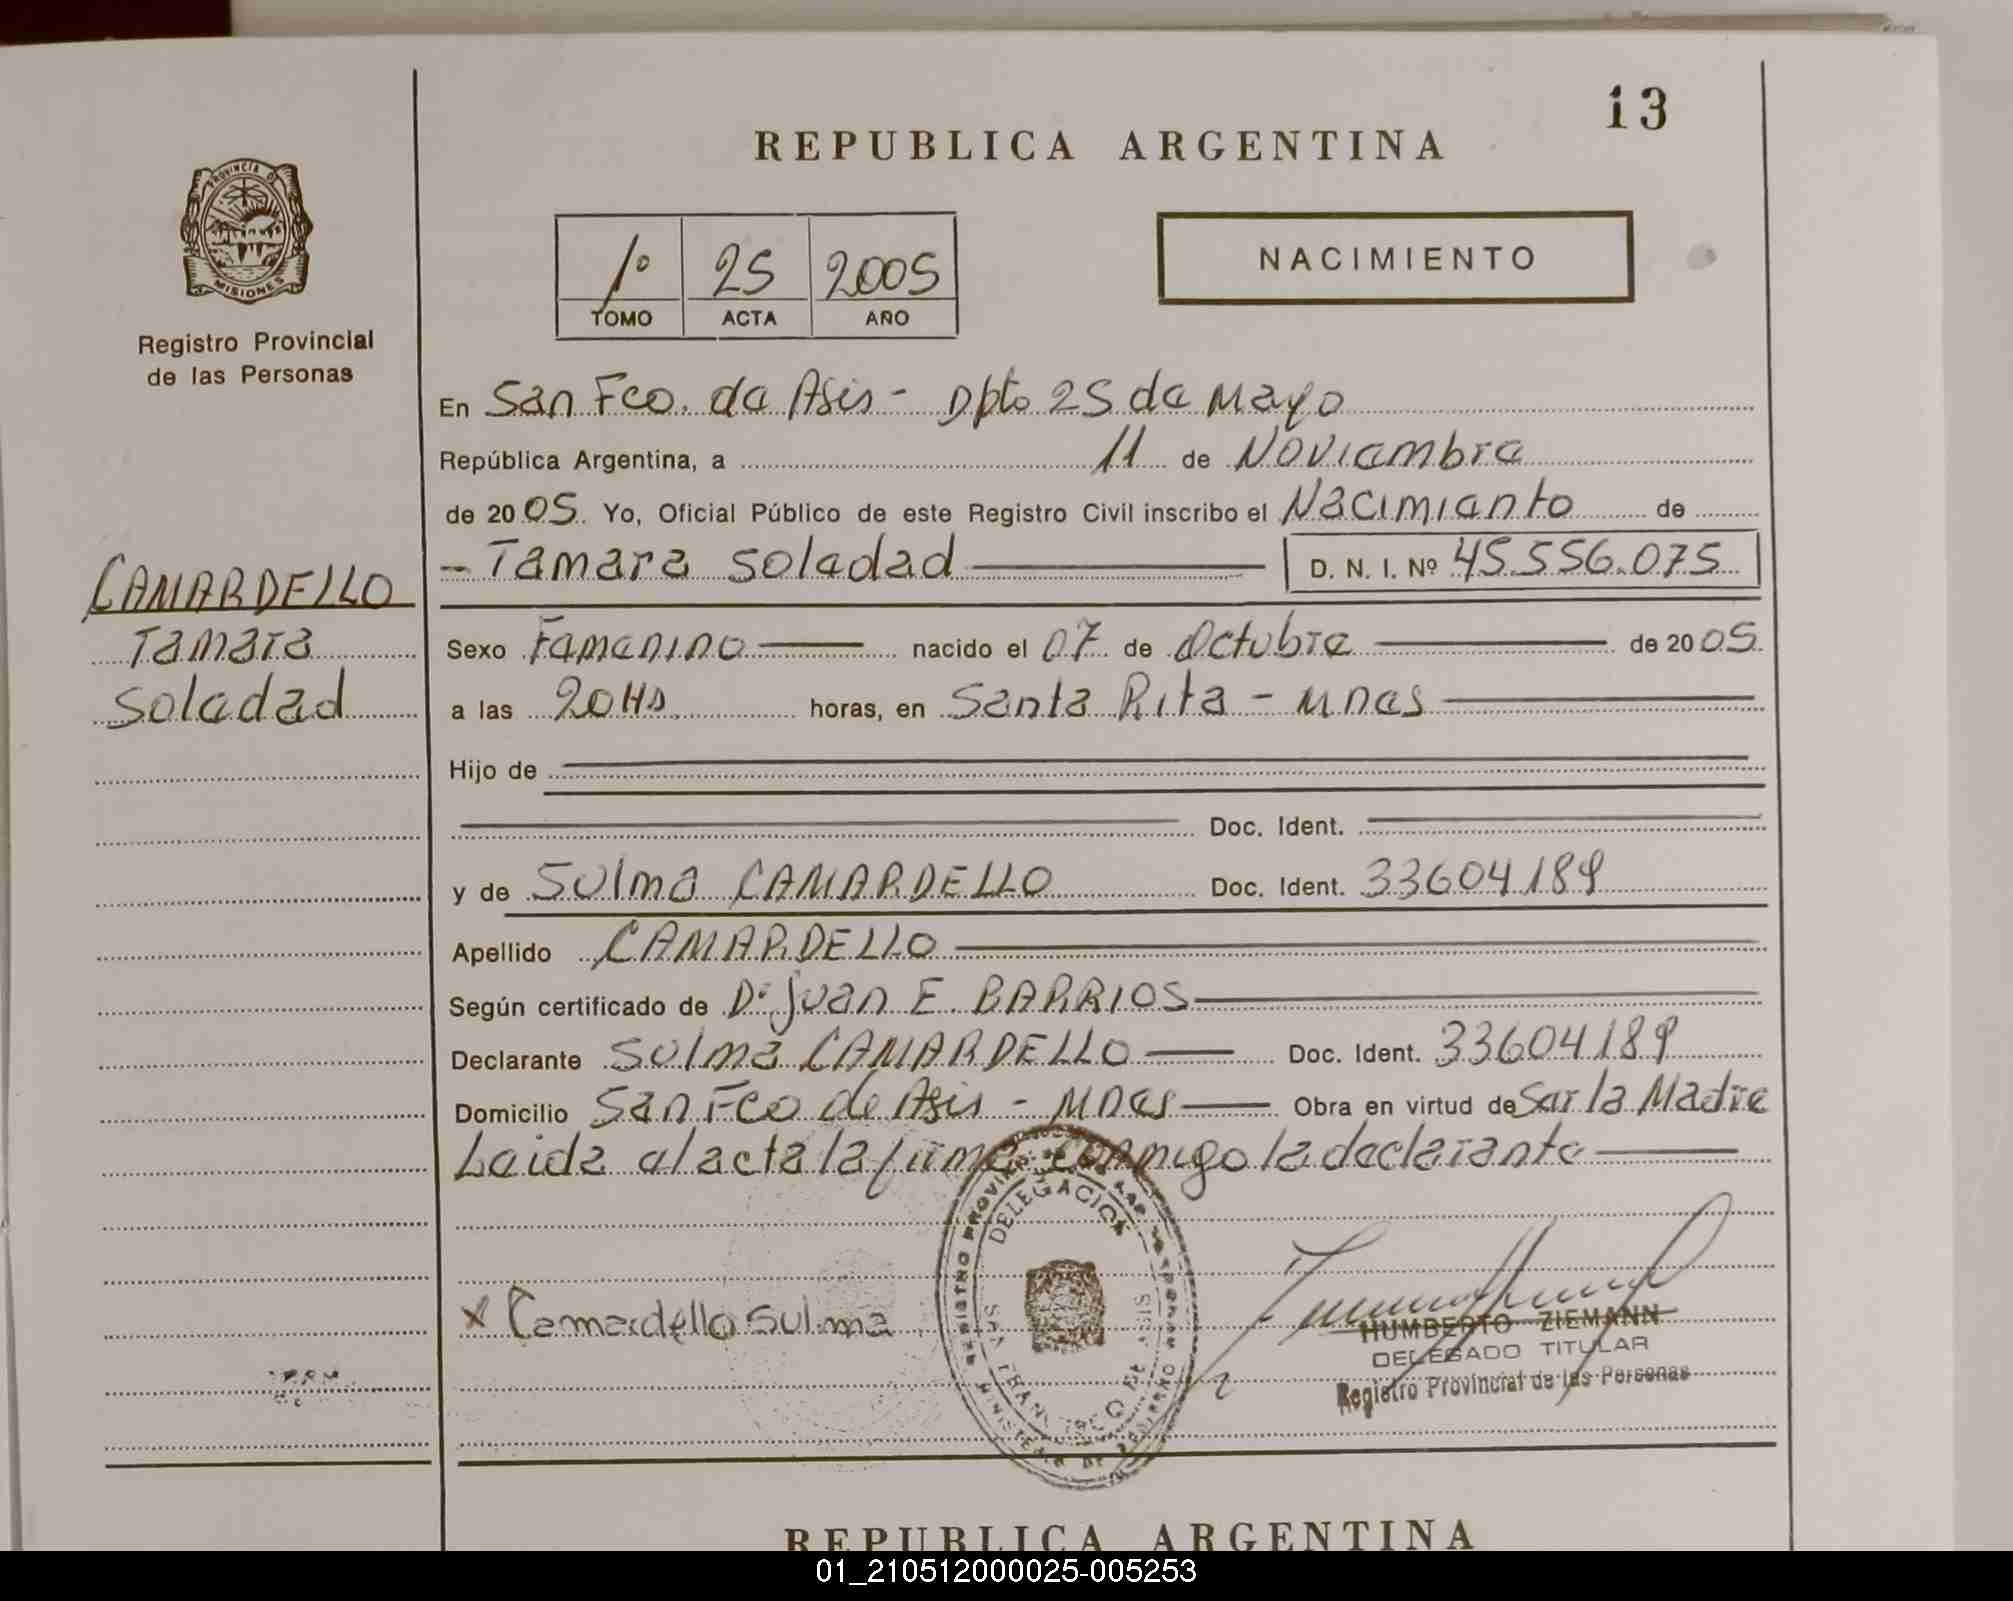 13
REPUBLICA ARGENTINA
PROVINCIA DE
MISIONES
Registro Provincial
de las Personas
1º 25 2005
TOMO ACTA AÑO
NACIMIENTO
En San Fco. de Asis - Dpto 25 de Mayo
República Argentina, a 11 de Noviembre
de 2005. Yo, Oficial Público de este Registro Civil inscribo el Nacimiento de
- Tamara Soledad D. N. I. Nº 45.556.075
CAMARDELLO
Tamara
Soledad
Sexo Femenino nacido el 07 de Octubre de 2005.
a las 20 Hs. horas, en Santa Rita - Mnes
Hijo de
Doc. Ident.
y de Sulma CAMARDELLO Doc. Ident. 33604189
Apellido CAMARDELLO
Según certificado de Dr Juan E. BARRIOS
Declarante Sulma CAMARDELLO Doc. Ident. 33604189
Domicilio San Fco de Asis - Mnes Obra en virtud de Ser la Madre
Leida el acta la firma conmigo la declarante
DELEGACION
SAN FRANCISCO
x Camardello Sulma
HUMBERTO ZIEMANN
DELEGADO TITULAR
Registro Provincial de las Personas
REPUBLICA ARGENTINA
01_210512000025-005253